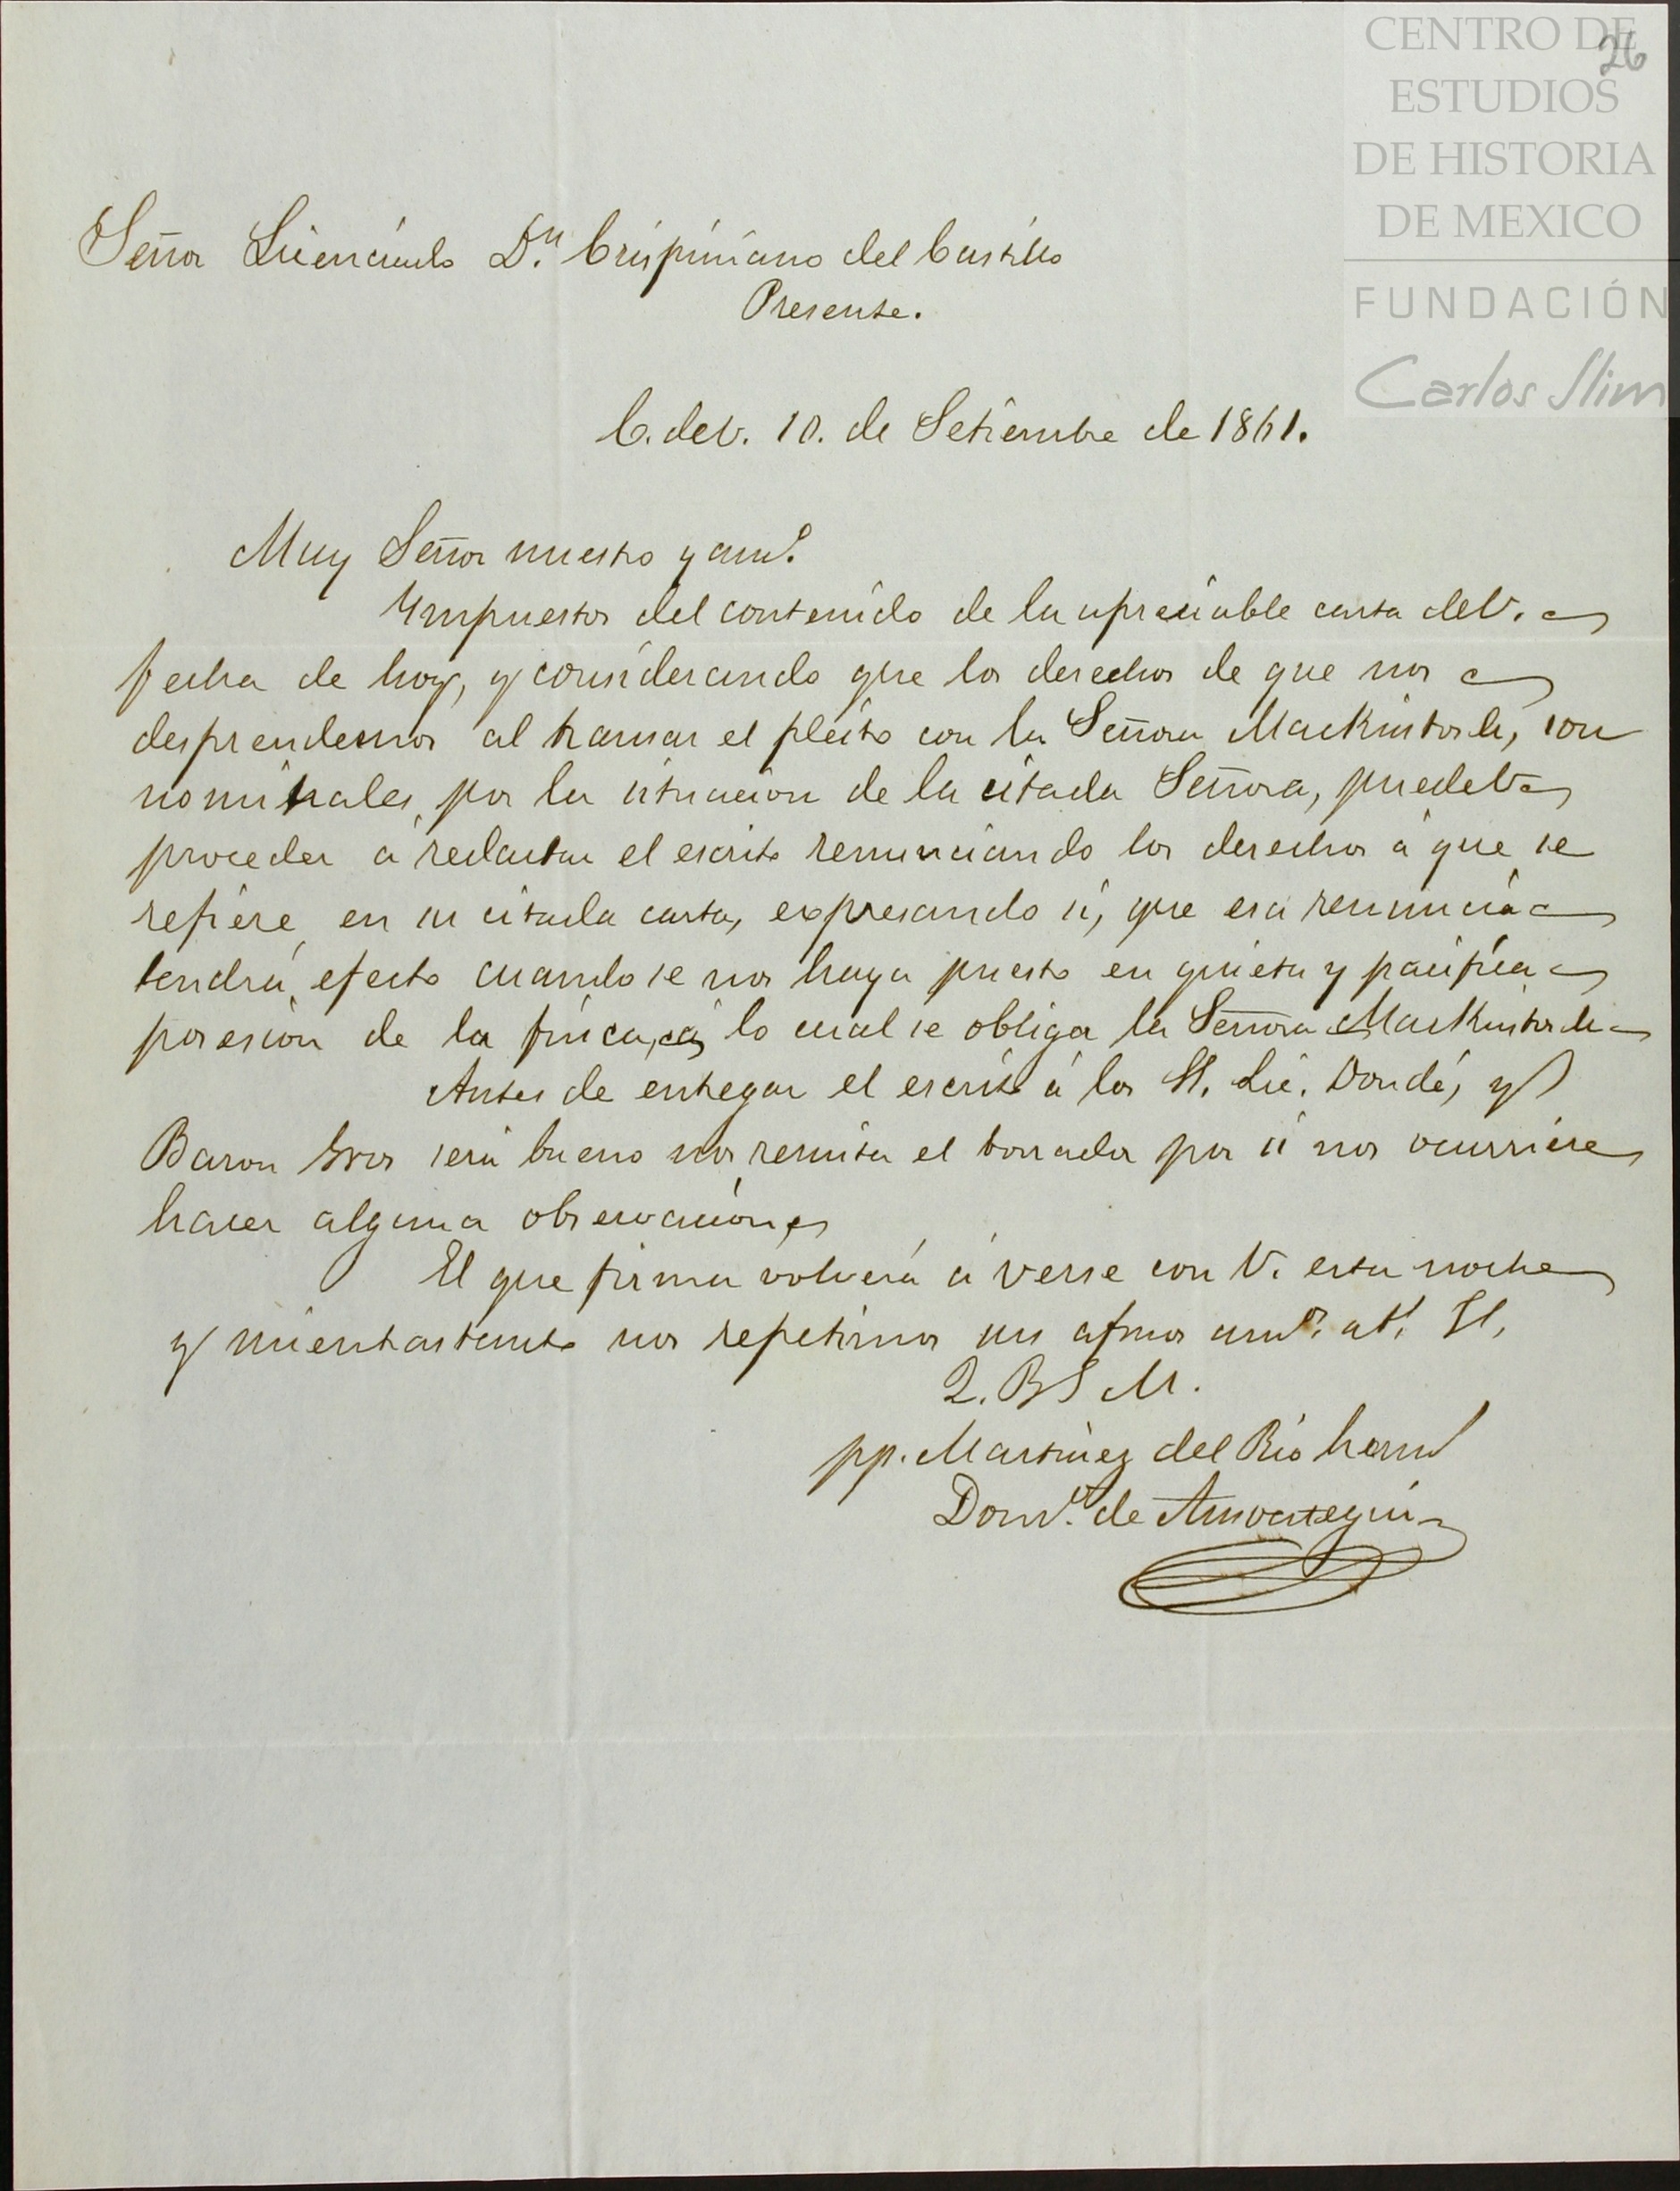 CENTRO DE
ESTUDIOS
DE HISTORIA
DE MEXICO
FUNDACIÓN
Carlos Slim
26
Señor Licenciado D.n Crispiniano del Castillo
Presente.
C. de V. 10. de Setiembre de 1861.
Muy Señor nuestro y am.o
Ympuestos del contenido de la apreciable carta de V.
fecha de hoy, y considerando que los derechos de que nos
desprendemos al transar el pleito con la Señora Mackintosh, son
nominales, por la situacion de la citada Señora, puede V.
proceder á redactar el escrito renunciando los derechos á que se
refiere en su citada carta, expresando si, que esa renuncia
tendrá efecto cuando se nos haya puesto en quieta y pacifica
posesion de la finca, á lo cual se obliga la Señora Mackintosh
Antes de entregar el escrito á los SS. Lic. Dondé, y
Baron será bueno nos remita el borrador por si nos ocurriere
hacer alguna observacion
El que firma volverá á verse con V. esta noche
y mientrastanto nos repetimos sus afmos am.os at.s SS.
Q. B S M.
pp. Martinez del Rio herm.s
Dom.o de Amoategui